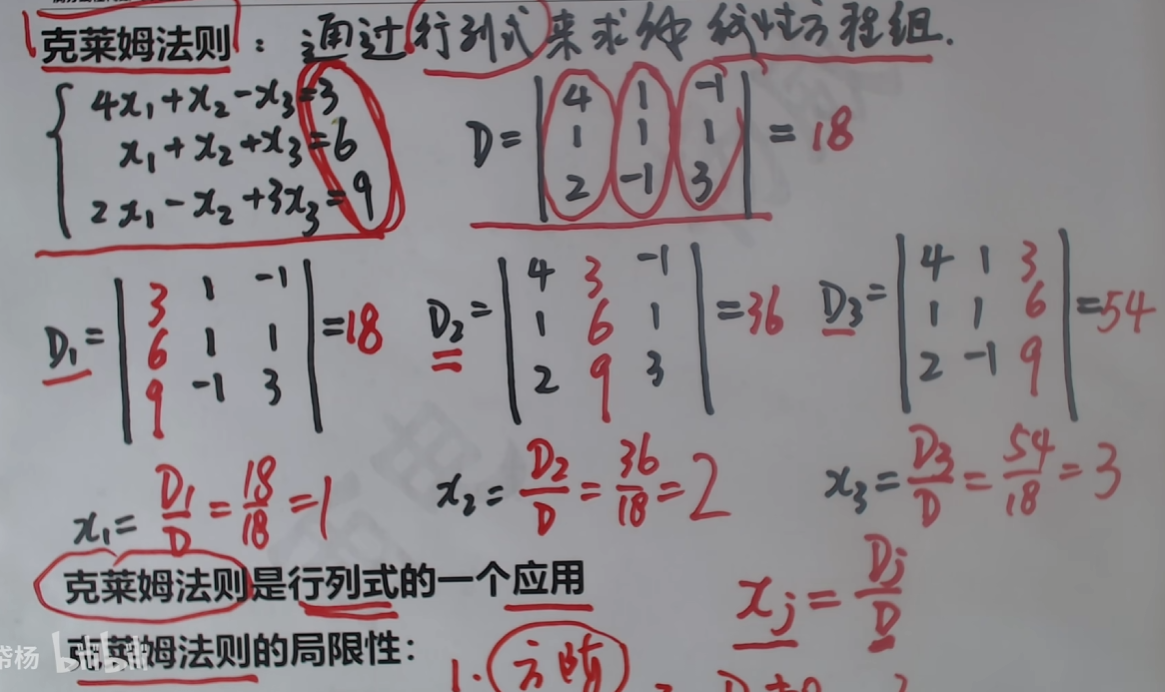 克莱姆法则：通过行列式来求解线性方程组.
4x₁+x₂-x₃=3
x₁+x₂+x₃=6
2x₁-x₂+3x₃=9
D= | 4 1 -1 |
| 1 1 1 |
| 2 -1 3 | =18
D₁= | 3 1 -1 |
| 6 1 1 |
| 9 -1 3 | =18
D₂= | 4 3 -1 |
| 1 6 1 |
| 2 9 3 | =36
D₃= | 4 1 3 |
| 1 1 6 |
| 2 -1 9 | =54
x₁= D₁/D = 18/18 =1
x₂= D₂/D = 36/18 =2
x₃= D₃/D = 54/18 =3
克莱姆法则是行列式的一个应用
xⱼ= Dⱼ/D
克莱姆法则的局限性：
杨 bilibili
1.